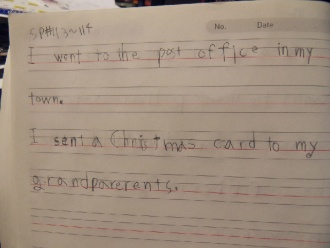 SP#113~114
No. Date
I went to the post office in my
town.
I sent a Christmas card to my
grandparerents.